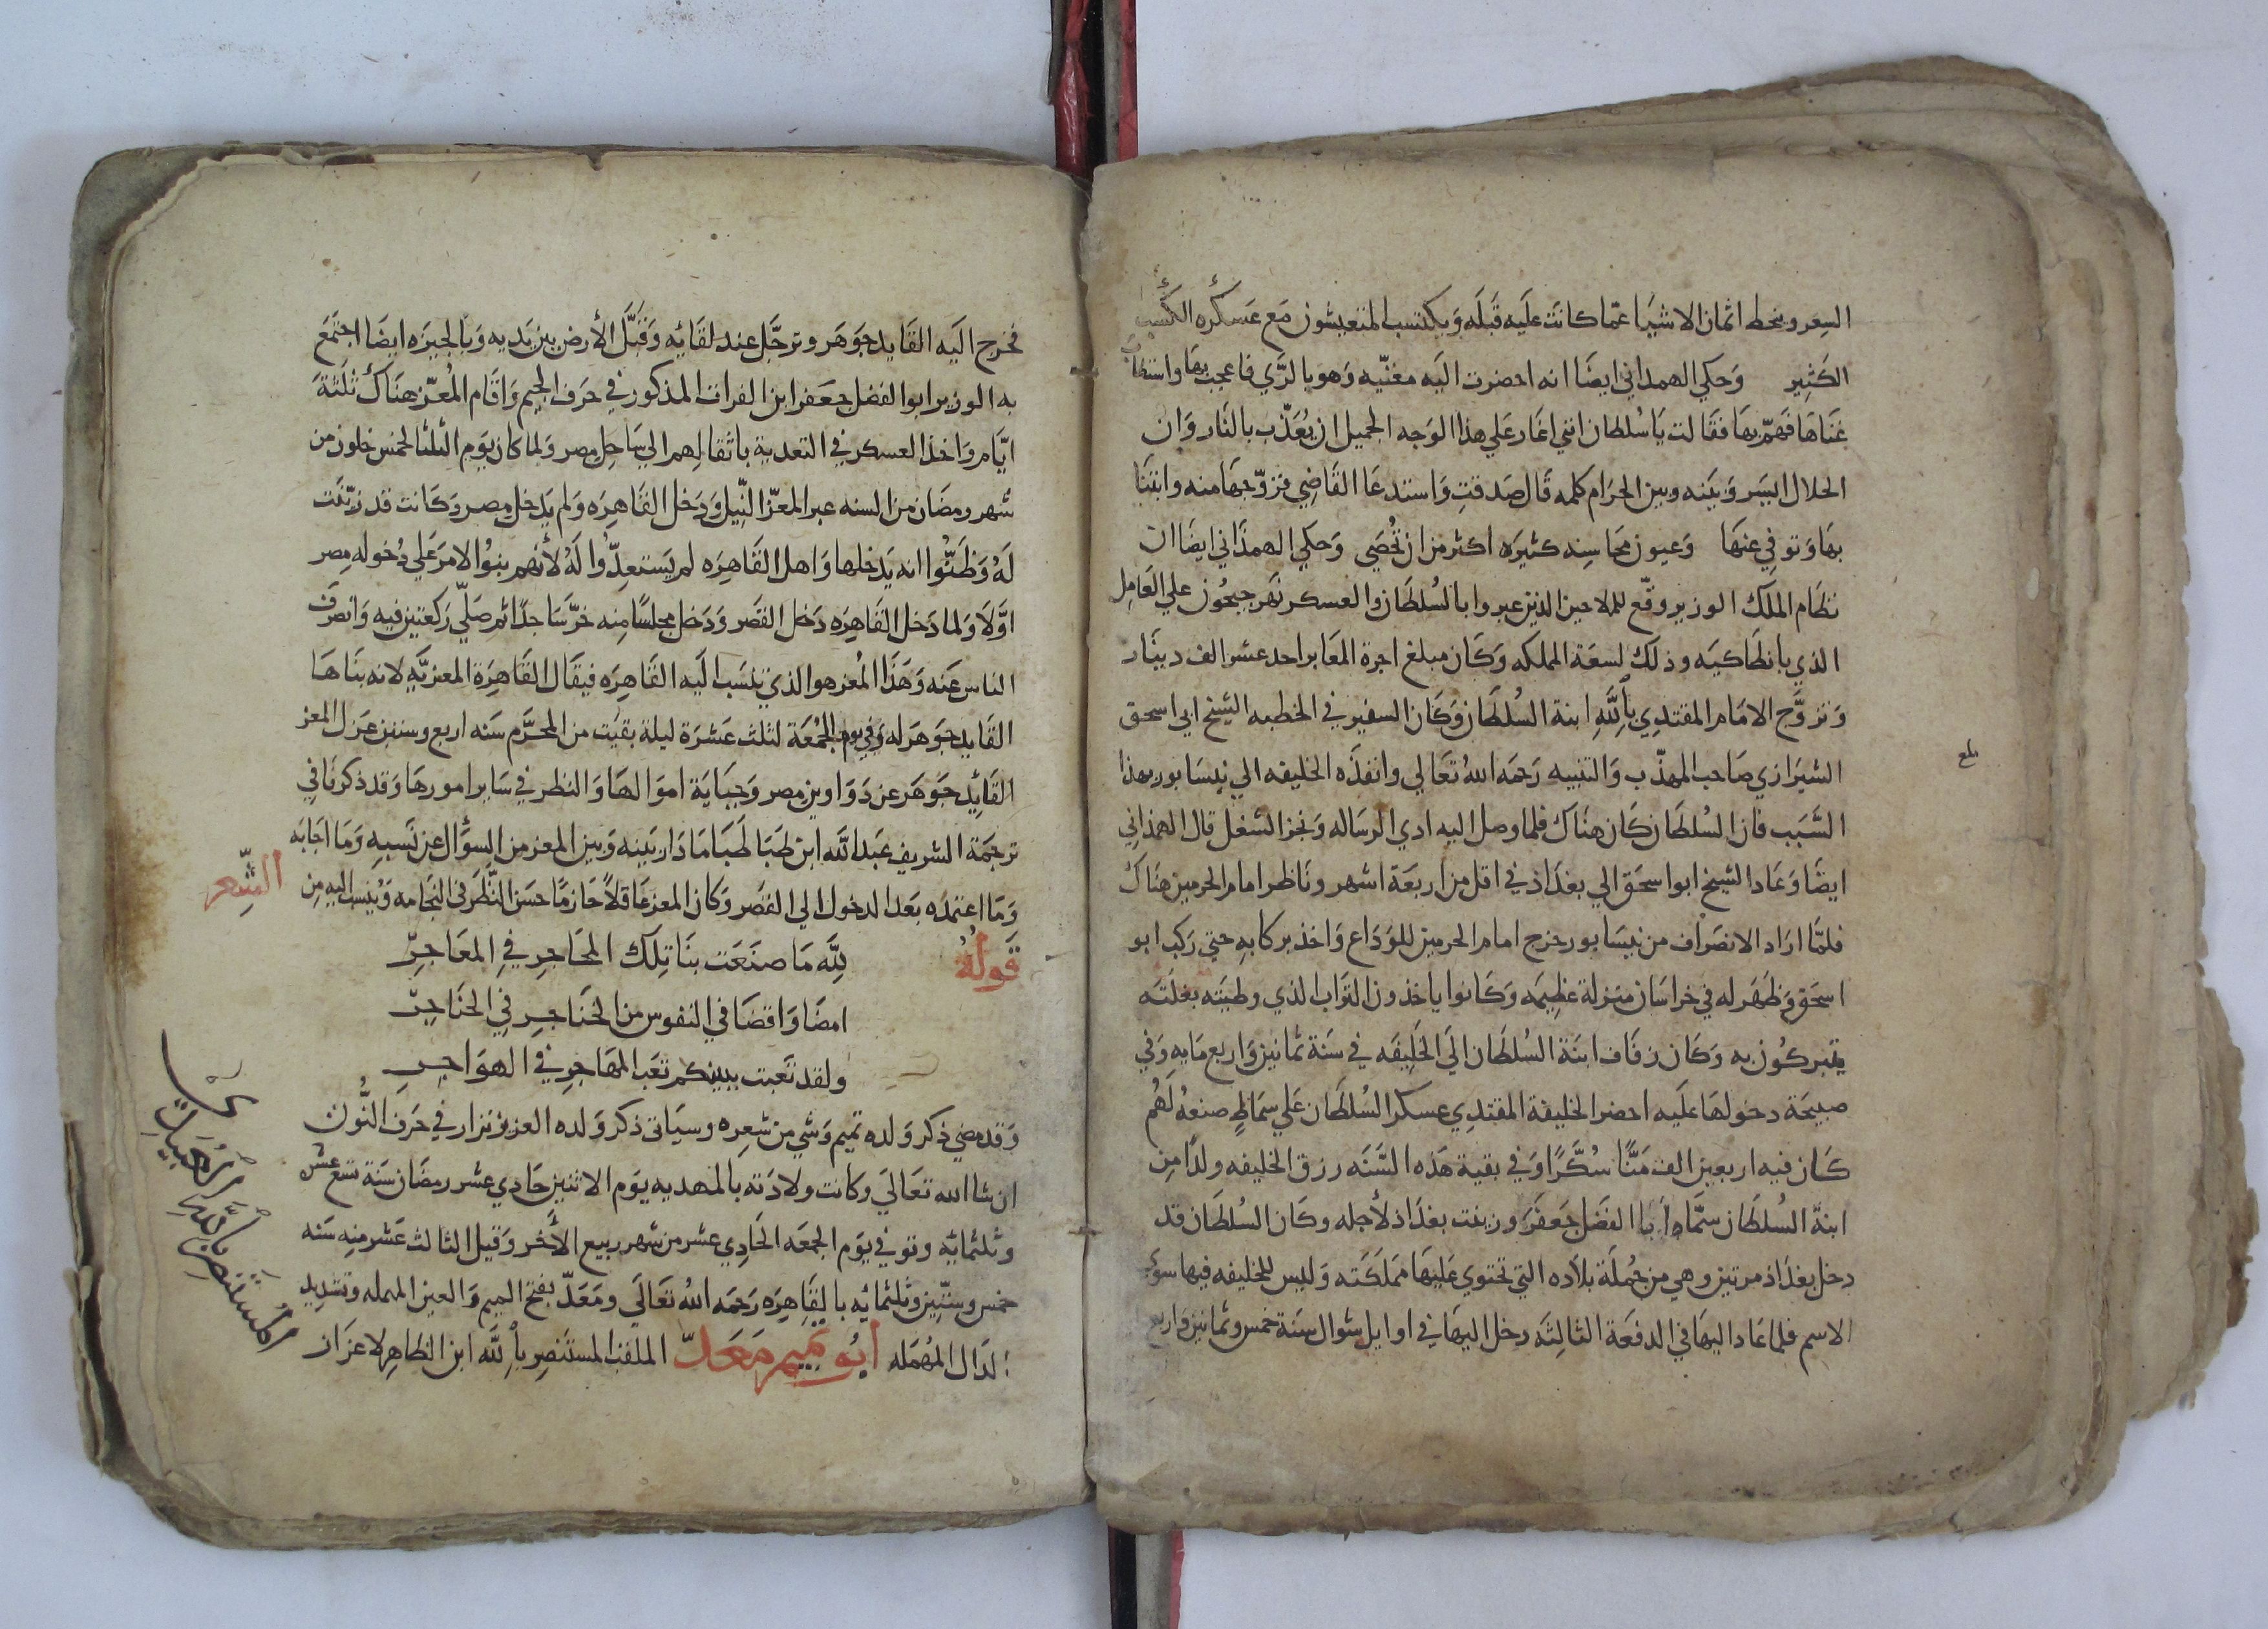 السعر وينحط اثمان الاشيا عمّا كانت عليه قبله ويكتسب المتعيشون مع عسكره الكسب
الكثير وحكي الهمداني ايضا انه احضرت اليه مغنّيه وهو بالرّي فاعجب بها واستطاب
غناها فهمّ بها فقالت يا سلطان انني اغار علي هذا الوجه الجميل ان يعذّب بالنار وان
الحلال ايسر وبينه وبين الحرام كلمه قال صدقت واستدعا القاضي فتزوّجها منه وابتنا
بها وتوفي عنها وعيون محاسنه كثيره اكثر من ان تحصي وحكي الهمذاني ايضا ان
نظام الملك الوزير وقّع للملاحين الذين عبروا بالسلطان والعسكر نهر جيحون علي العامل
الذي بانطاكيه وذلك لسعة المملكه وكان مبلغ اجرة المعابر احد عشر الف دينار
وتزوّج الامام المقتدي بالله ابنة السلطان وكان السفير في الخطبه الشيخ ابي اسحق
الشيرازي صاحب المهذّب والتنبيه رحمه الله تعالي وانفذه الخليفه الي نيسابور بهذا
بلغ
السبب فان السلطان كان هناك فلما وصل اليه ادي الرساله ونجز الشغل قال الهمذاني
ايضا وعاد الشيخ ابوا سحق الي بغداذ في اقل من اربعة اشهر وناظر امام الحرمين هناك
فلمّا اراد الانصراف من نيسابور خرج امام الحرمين للوداع واخذ بركابه حتي ركب ابو
اسحق وظهر له في خراسان منزلة عظيمه وكانوا ياخذون التراب الذي وطيته بغلته
يتبركون به وكان زفاف ابنة السلطان الي الخليفه في سنة ثمانين واربع مايه وفي
صبيحة دخولها عليه احضر الخليفة المقتدي عسكر السلطان علي سماط صنعه لهم
كان فيه اربعين الف منّا سكّرا وفي بقية هذه السّنه رزق الخليفه ولدا من
ابنة السلطان سمّاه ابا الفضل جعفر وزينت بغداذ لأجله وكان السلطان قد
دخل بغداذ مرتين وهي من جملة بلاده التي تحتوي عليها مملكته وليس للخليفه فيها سوي
الاسم فلما عاد اليها في الدفعة الثالثه دخل اليها في اوايل شوال سنة خمس وثمانين واربع
فخرج اليه القايد جوهر وترجّل عند لقايه وقبّل الأرض بين يديه وبالجيزه ايضا اجتمع
به الوزير ابوا الفضل جعفر ابن الفرات المذكور في حرف الجيم واقام المعزّ هناك ثلثة
ايّام واخذ العسكر في التعدية باثقالهم الي ساحل مصر ولما كان يوم الثلثا لخمس خلون من
شهر رمضان من السنه عبر المعزّ النّيل ودخل القاهره ولم يدخل مصر وكانت قد زيّنت
له وظنّوا انه يدخلها واهل القاهره لم يستعدّوا له لأنهم بنوا الامر علي دخوله مصر
اوّلا ولما دخل القاهره دخل القصر ودخل مجلسا منه خرّ ساجدا ثم صلّي ركعتين فيه وانصرف
الناس عنه وهذا المعز هو الذي تنسب اليه القاهره فيقال القاهرة المعزيّه لانه بناها
القايد جوهر له وفي يوم الجمعة لثلث عشرة ليلة بقيت من المحرّم سنه اربع وستين عزل المعز
القائد جوهر عن دواوين مصر وجباية اموالها والنظر في ساير امورها وقد ذكرنا في
ترجمة الشريف عبد الله ابن طباطبا ما دار بينه وبين المعز من السؤال عن نسبه وما اجابه
وما اعتمده بعد الدخول الي القصر وكان المعز عاقلا حازما حسن النّظر في النجامه وينسب اليه من
الشّعر
قوله لله ما صنعت بنا تلك المحاجر في المعاجر
امضا واقضا في النفوس من الخناجر في الحناجر
ولقد تعبت ببينكم تعب المهاجر في الهواجر
وقد مضي ذكر ولده تميم وشي من شعره وسياتي ذكر ولده العزيز نزار في حرف النّون
ان شا الله تعالي وكانت ولادته بالمهديه يوم الاثنين حادي عشر رمضان سنة تسع عشر
وثلثمائه وتوفي يوم الجمعه الحادي عشر من شهر ربيع الأخر وقيل الثالث عشر منه سنه
خمس وستّين وثلثمائه بالقاهره رحمه الله تعالي ومعدّ بفتح الميم والعين المهمله وتشديد
الدال المهمله ابو تميم معدّ الملقب المستنصر بالله ابن الظاهر لاعزاز
المستنصر بالله